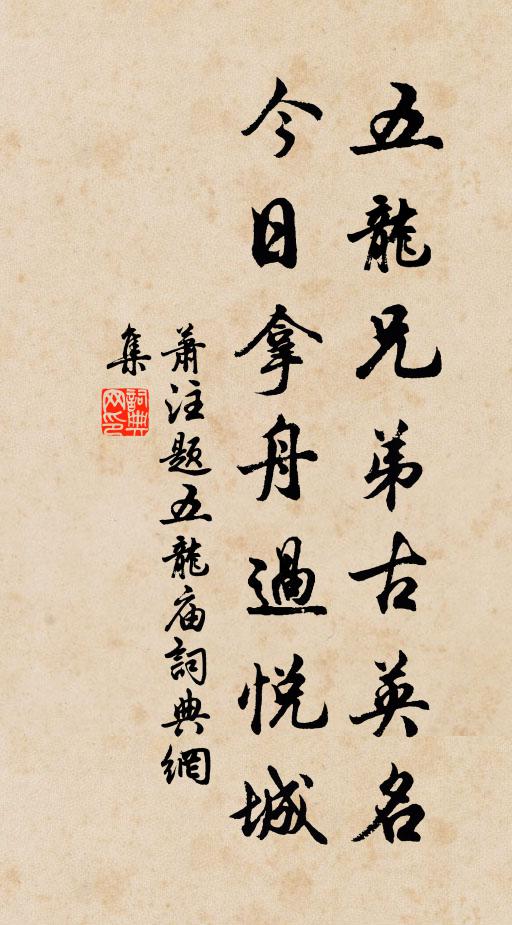 五龍兄弟古英名
今日拿舟過悦城
蕭注題五龍庙詞典網
集
詞典
网印